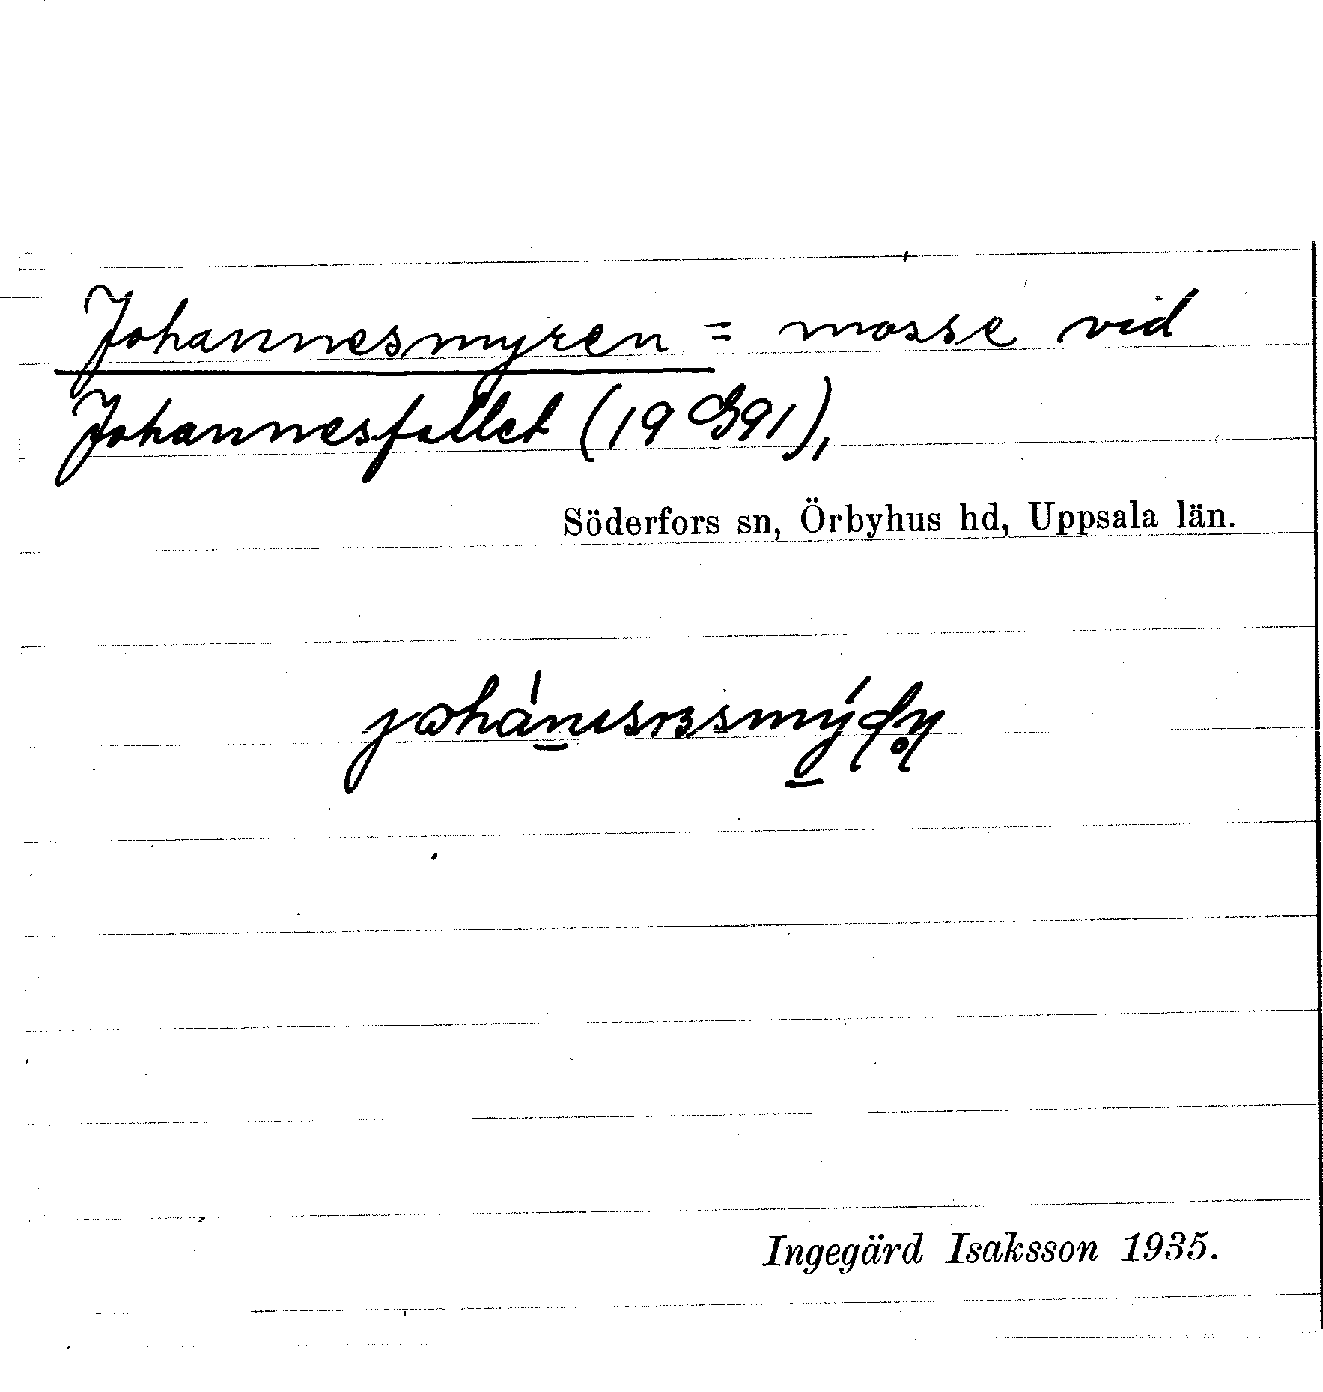 Johannesmyren = mosse vid
Johannesfallet (19 B91),
Söderfors sn, Örbyhus hd, Uppsala län.
Ingegärd Isaksson 1935.